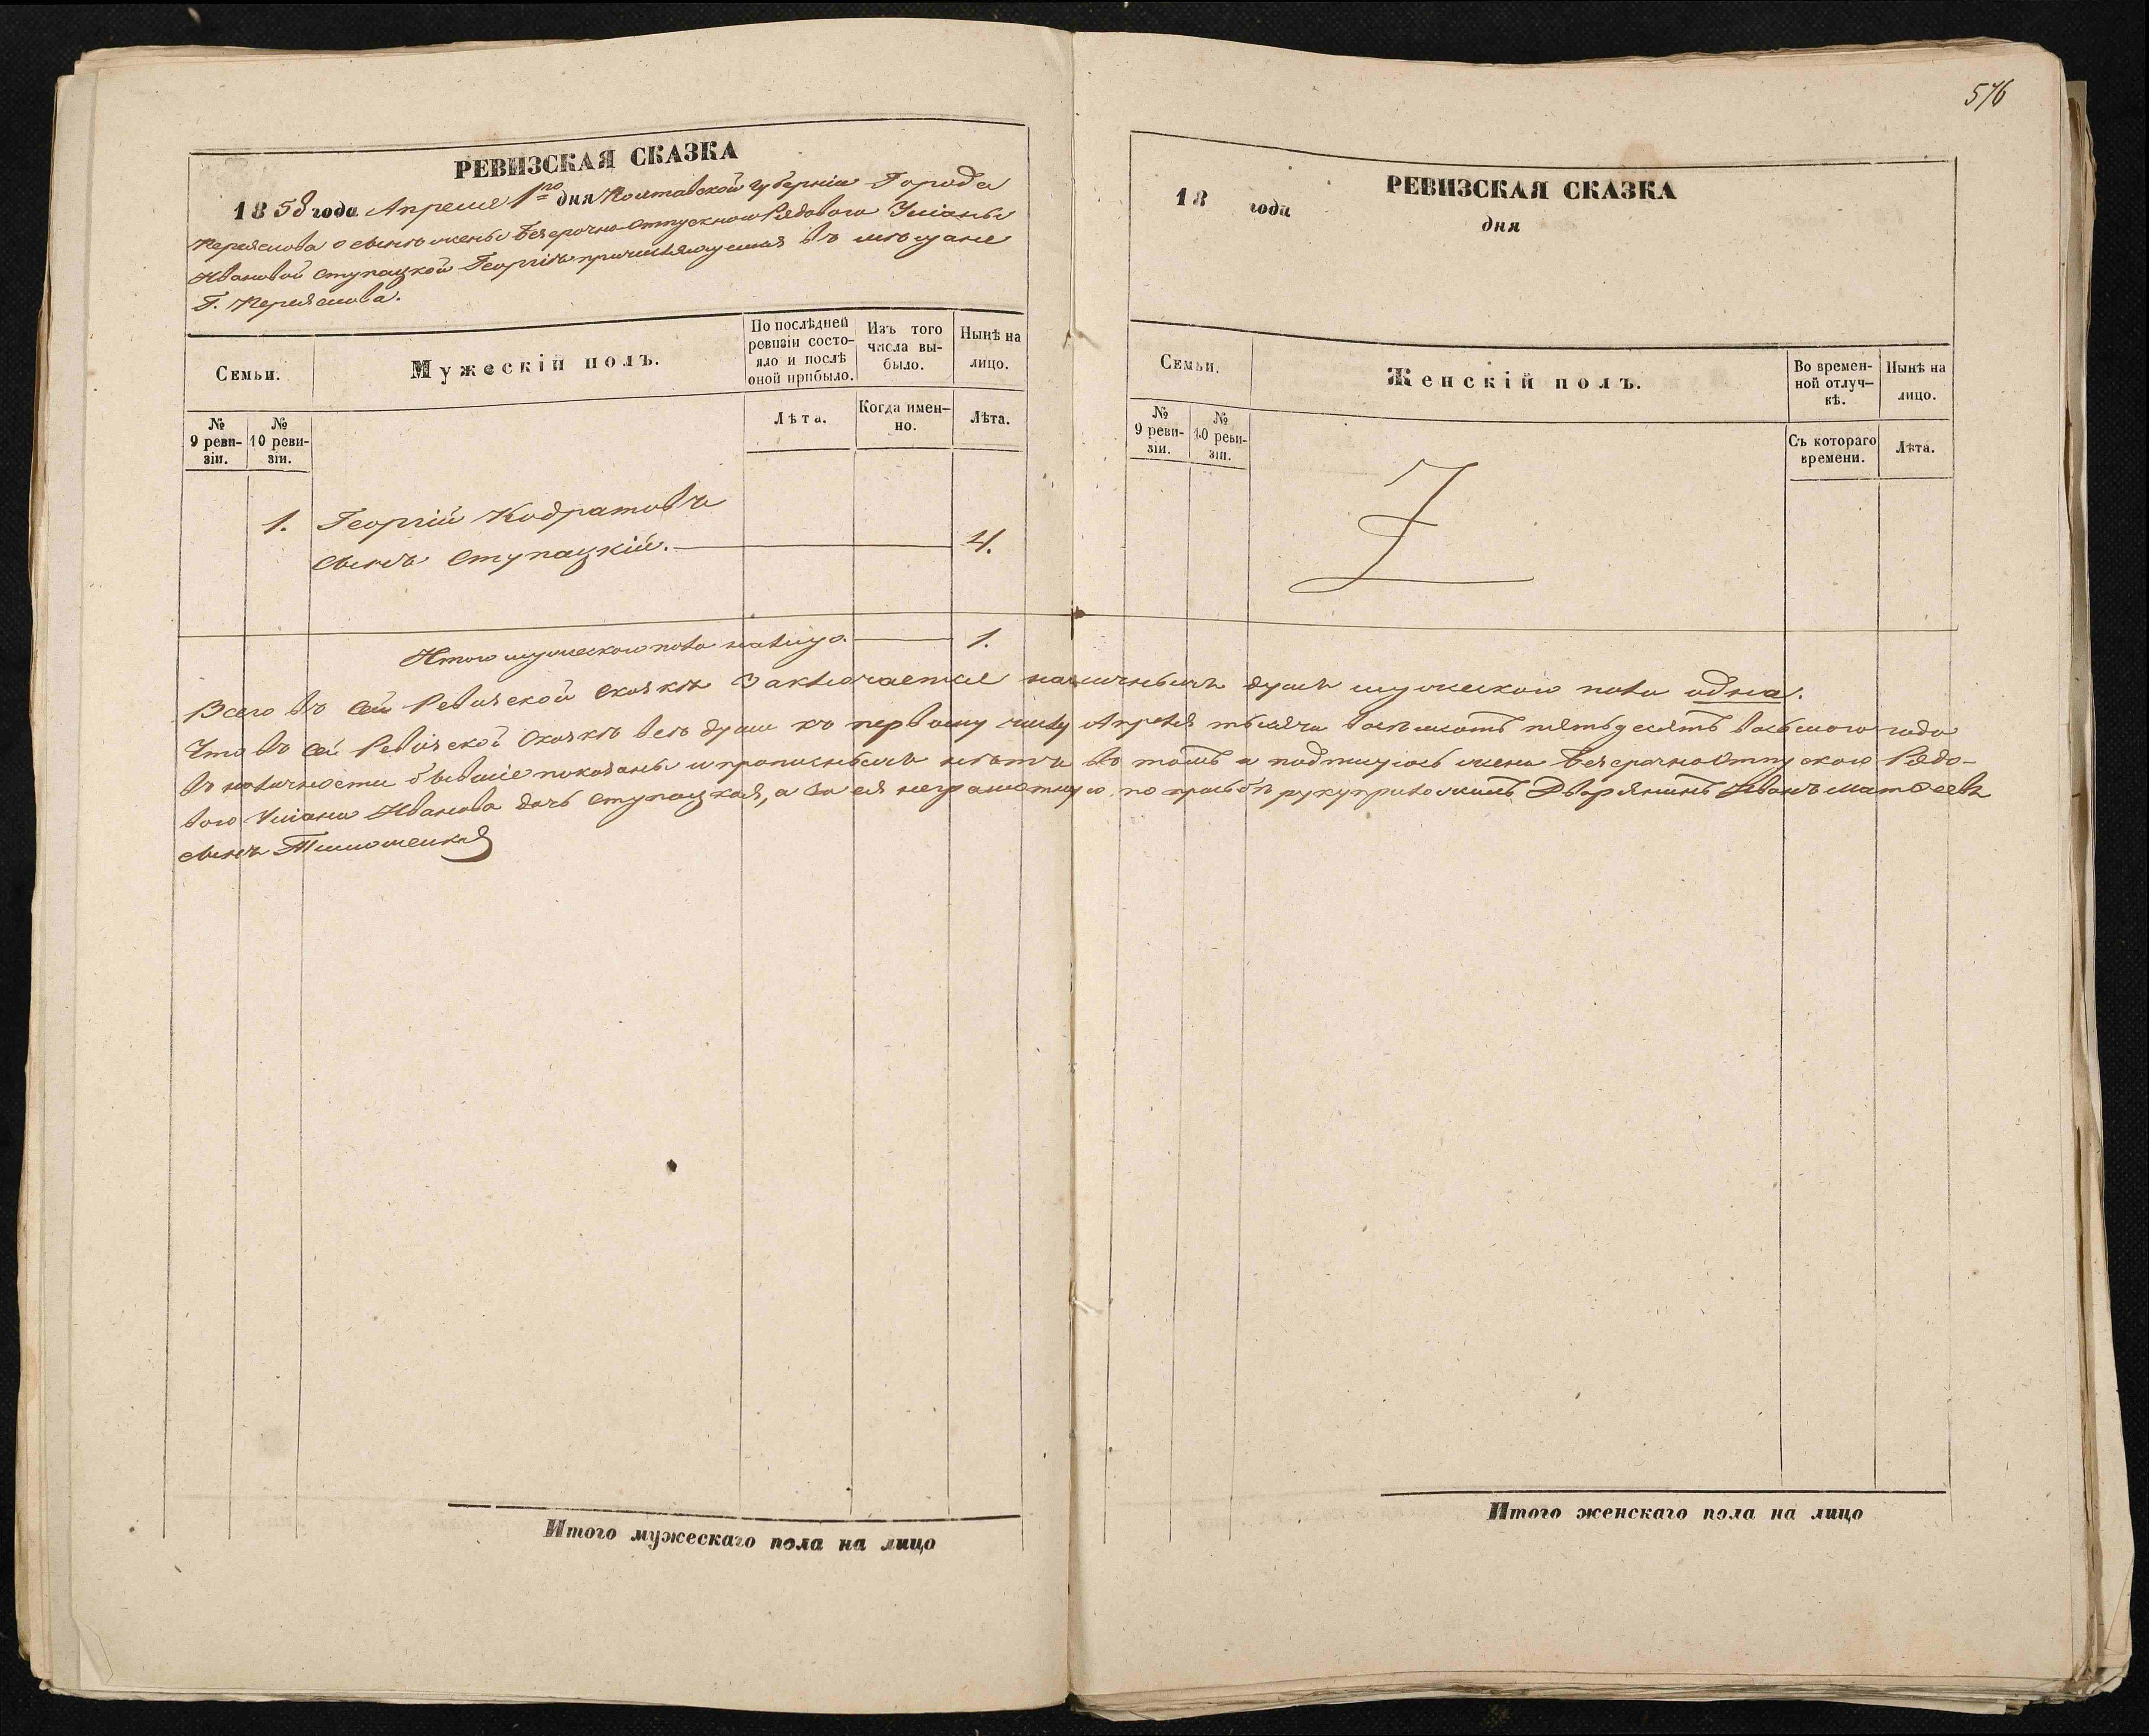 576
РЕВИЗСКАЯ СКАЗКА
1858 года Апреля 1го дня Полтавской губерніи Города
Переяслова о сынѣ жены безсрочно-отпускного Рядового Уліаны
Ивановой Ступацкой Георгіѣ причисляющемся въ мѣщане
Г. Переяслова.
Семьи.
Мужескій полъ.
По послѣдней ревизіи состояло и послѣ оной прибыло.
Изъ того числа выбыло.
Нынѣ на лицо.
№ 9 ревизіи.
№ 10 ревизіи.
Лѣта.
Когда именно.
Лѣта.
1. Георгій Кодратовъ
сынъ Ступацкій. 4.
Итого мужеского пола налицо. 1.
РЕВИЗСКАЯ СКАЗКА
18 года
дня
Семьи.
Женскій полъ.
Во временной отлучкѣ.
Нынѣ на лицо.
№ 9 ревизіи.
№ 10 ревизіи.
Съ котораго времени.
Лѣта.
Всего въ сей Ревизской Сказкѣ Заключается наличныхъ душъ мужеского пола одна.
Что въ сей Ревизской Сказкѣ всѣ души къ первому числу Апреля тысяча восемсотъ пятьдесятъ восьмого года
въ наличности бывшіе показаны и прописныхъ нѣтъ въ томъ и подпишуюсь жена безсрочно отпускного Рядо-
вого Уліана Иванова дочь Ступацкая, а за ея неграмотную по просьбѣ руку приложилъ Дворянинъ Иванъ Матѳеевъ
сынъ Тимошенко
Итого мужескаго пола на лицо
Итого женскаго пола на лицо